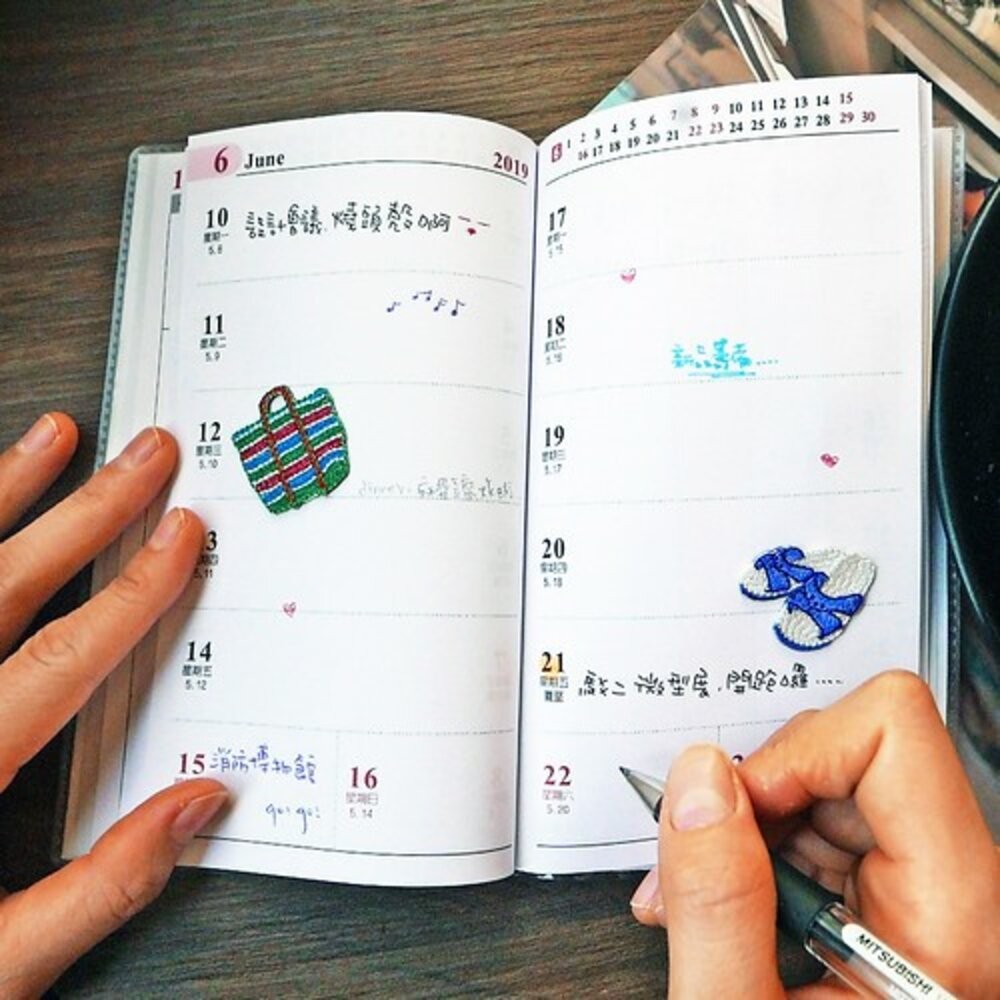 6 June 2019
10 設計會議.燒頭殼啊
星期一
5.8
11
星期二
5.9
12
星期三
5.10
dinner.
3
5.11
14
星期五
5.12
15 消防博物館
go! go!
16
星期日
5.14
6 1 2 3 4 5 6 7 8 9 10 11 12 13 14 15
16 17 18 19 20 21 22 23 24 25 26 27 28 29 30
17
星期一
5.15
18
星期二
5.16
新品
19
星期三
5.17
20
星期四
5.18
21 微型展.開跑囉....
星期五
夏至
22
星期六
5.20
MITSUBISHI